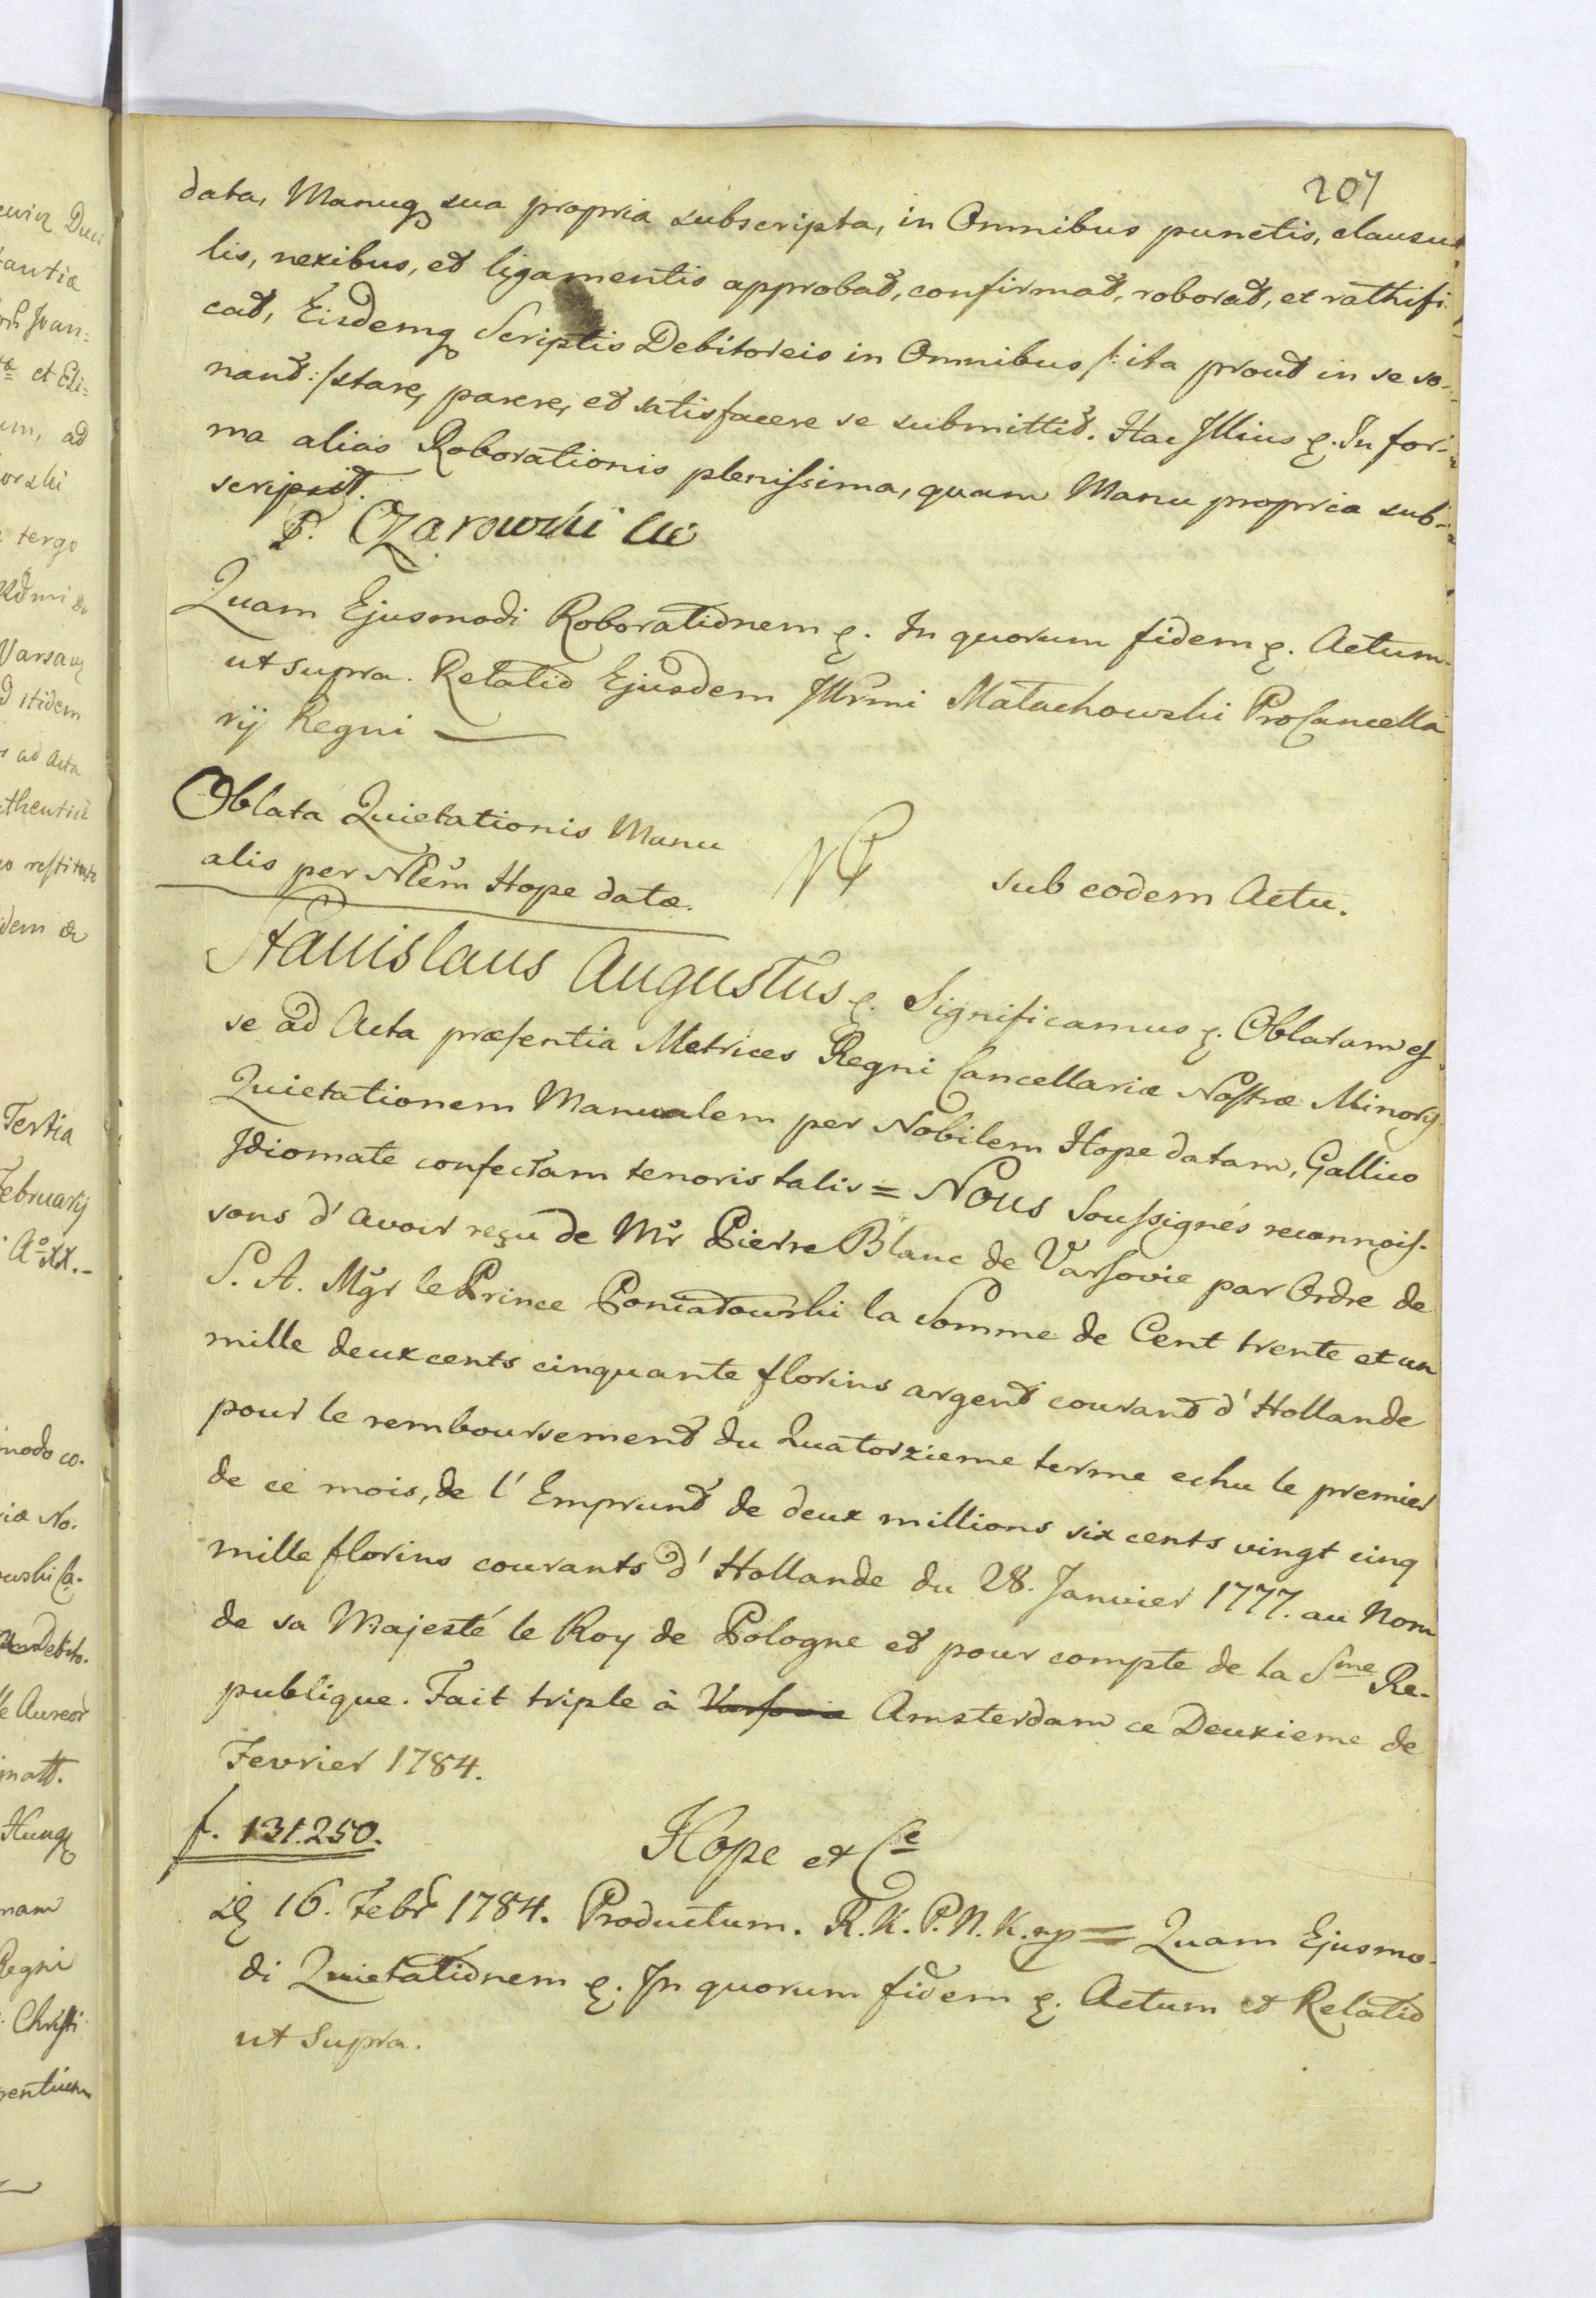 207
data, Manuq sua propria subscripta, in Omnibus punctis, clausu-
lis, nexibus, et ligamentis approbat, confirmat, roborat, et rathifi-
cat, Eisdemq Scriptis Debitoreis in Omnibus /: ita prout in se so-
nant :/ stare, parere, et satisfacere se submittit. Hac Illius &. In for-
ma alias Roborationis plenissima, quam Manu propria sub-
scripsit.
P. Czarowski
Quam Ejusmodi Roborationem &. In quorum fidem &. Actum
ut supra. Relatio Ejusdem Illrmi Małachowski ProCancella
rij Regni
Oblata Quietationis Manu
alis per Nlem Hope datæ.
sub eodem Actu.
Stanislaus Augustus &. Significamus &. Oblatam es-
se ad Acta præsentia Metrices Regni Cancellariæ Nostræ Minoris
Quietationem Manualem per Nobilem Hope datam, Gallico
Idiomate confectam tenoris talis = Nous Soussignés reconnois-
sons d'avoir reçu de Mr Pierre Blanc de Varsovie par Ordre de
S. A. Mgr le Prince Poniatowski la Somme de Cent trente et un
mille deux cents cinquante florins argent courant d'Hollande
pour le remboursement du Quatorzieme terme echu le premier
de ce mois, de l'Emprunt de deux millions six cents vingt cinq
mille florins courants d'Hollande du 28. Janvier 1777. au Nom
de sa Majesté le Roy de Pologne et pour compte de la Sme Re-
publique. Fait triple à Varsovie Amsterdam ce Deuxieme de
Fevrier 1784.
f. 131.250.
Hope et Ce
16. Febr 1784. Productum. R. K. P. N. K. mp = Quam Ejusmo-
di Quietationem &. In quorum fidem &. Actum et Relatio
ut Supra.